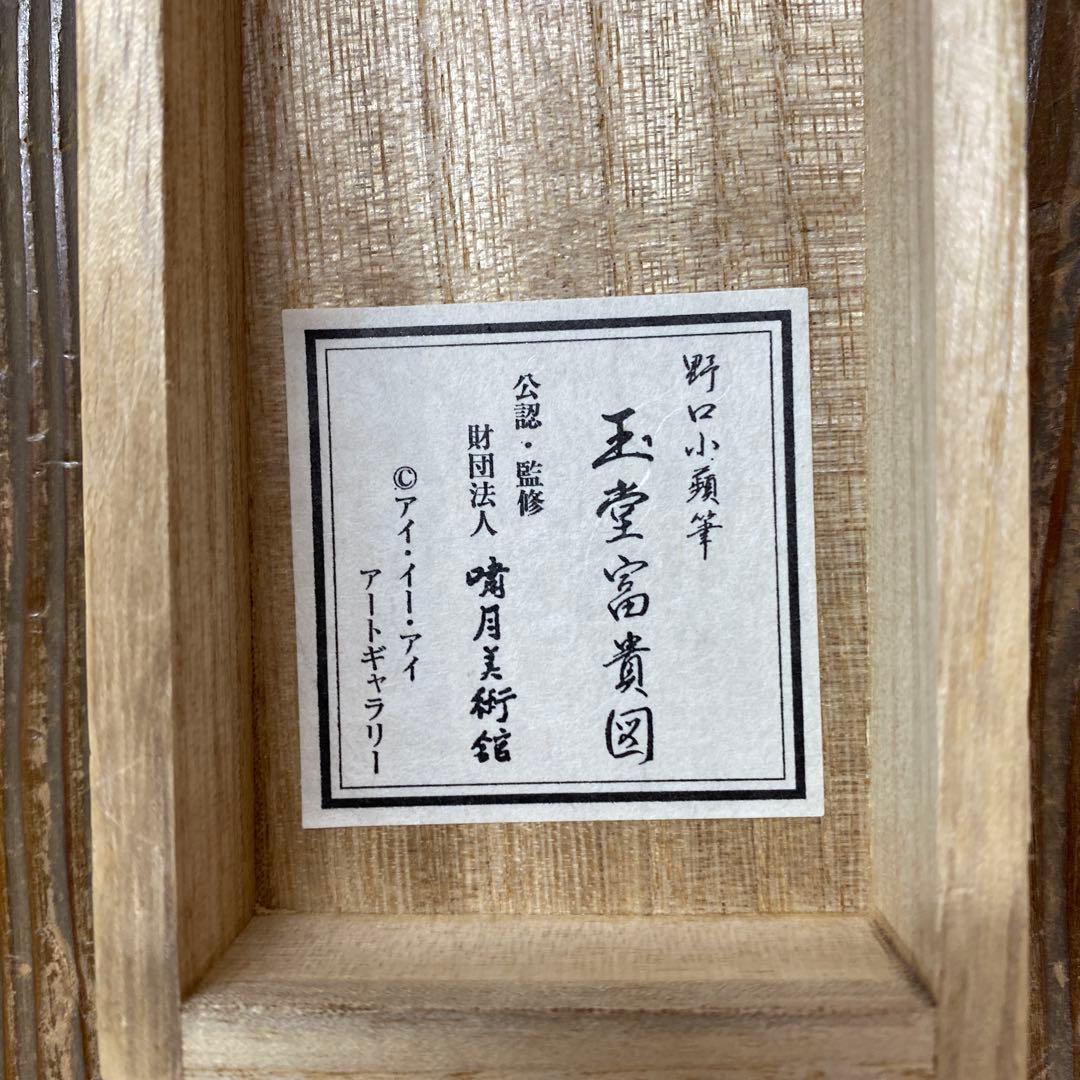 野口小蘋筆
玉堂富貴図
公認・監修
財団法人 嘯月美術館
©アイ・イー・アイ
アートギャラリー